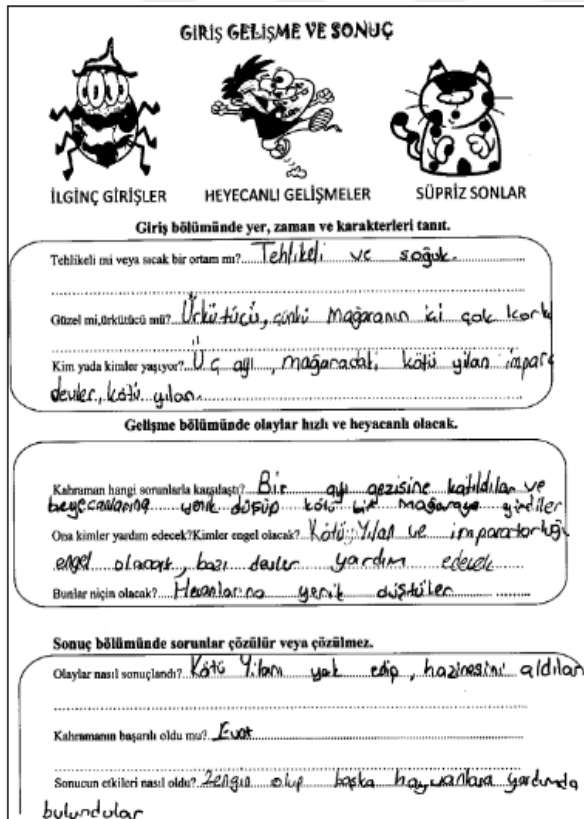 GİRİŞ GELİŞME VE SONUÇ
İLGİNÇ GİRİŞLER HEYECANLI GELİŞMELER SÜPRİZ SONLAR
Giriş bölümünde yer, zaman ve karakterleri tanıt.
Tehlikeli mi veya sıcak bir ortam mı? Tehlikeli ve soğuk.
Güzel mi,ürkütücü mü? Ürkütücü, çünkü mağaranın içi çok kork
Kim yada kimler yaşıyor? Üç ayı, mağaradaki kötü yılan impara
devler, kötü yılan.
Gelişme bölümünde olaylar hızlı ve heyacanlı olacak.
Kahraman hangi sorunlarla karşılaştı? Bir ayı gezisine katıldılar ve
yenik düşüp kötü bir mağaraya girdiler
Ona kimler yardım edecek?Kimler engel olacak? Kötü Yılan ve imparatorluğu
engel olacak, bazı devler yardım edecek
Bunlar niçin olacak? yenik düştüler
Sonuç bölümünde sorunlar çözülür veya çözülmez.
Olaylar nasıl sonuçlandı? Kötü Yılanı yok edip, hazinesini aldılar
Kahramanın başarılı oldu mu? Evet
Sonucun etkileri nasıl oldu? Zengin olup başka hayvanlara yardımda
bulundular